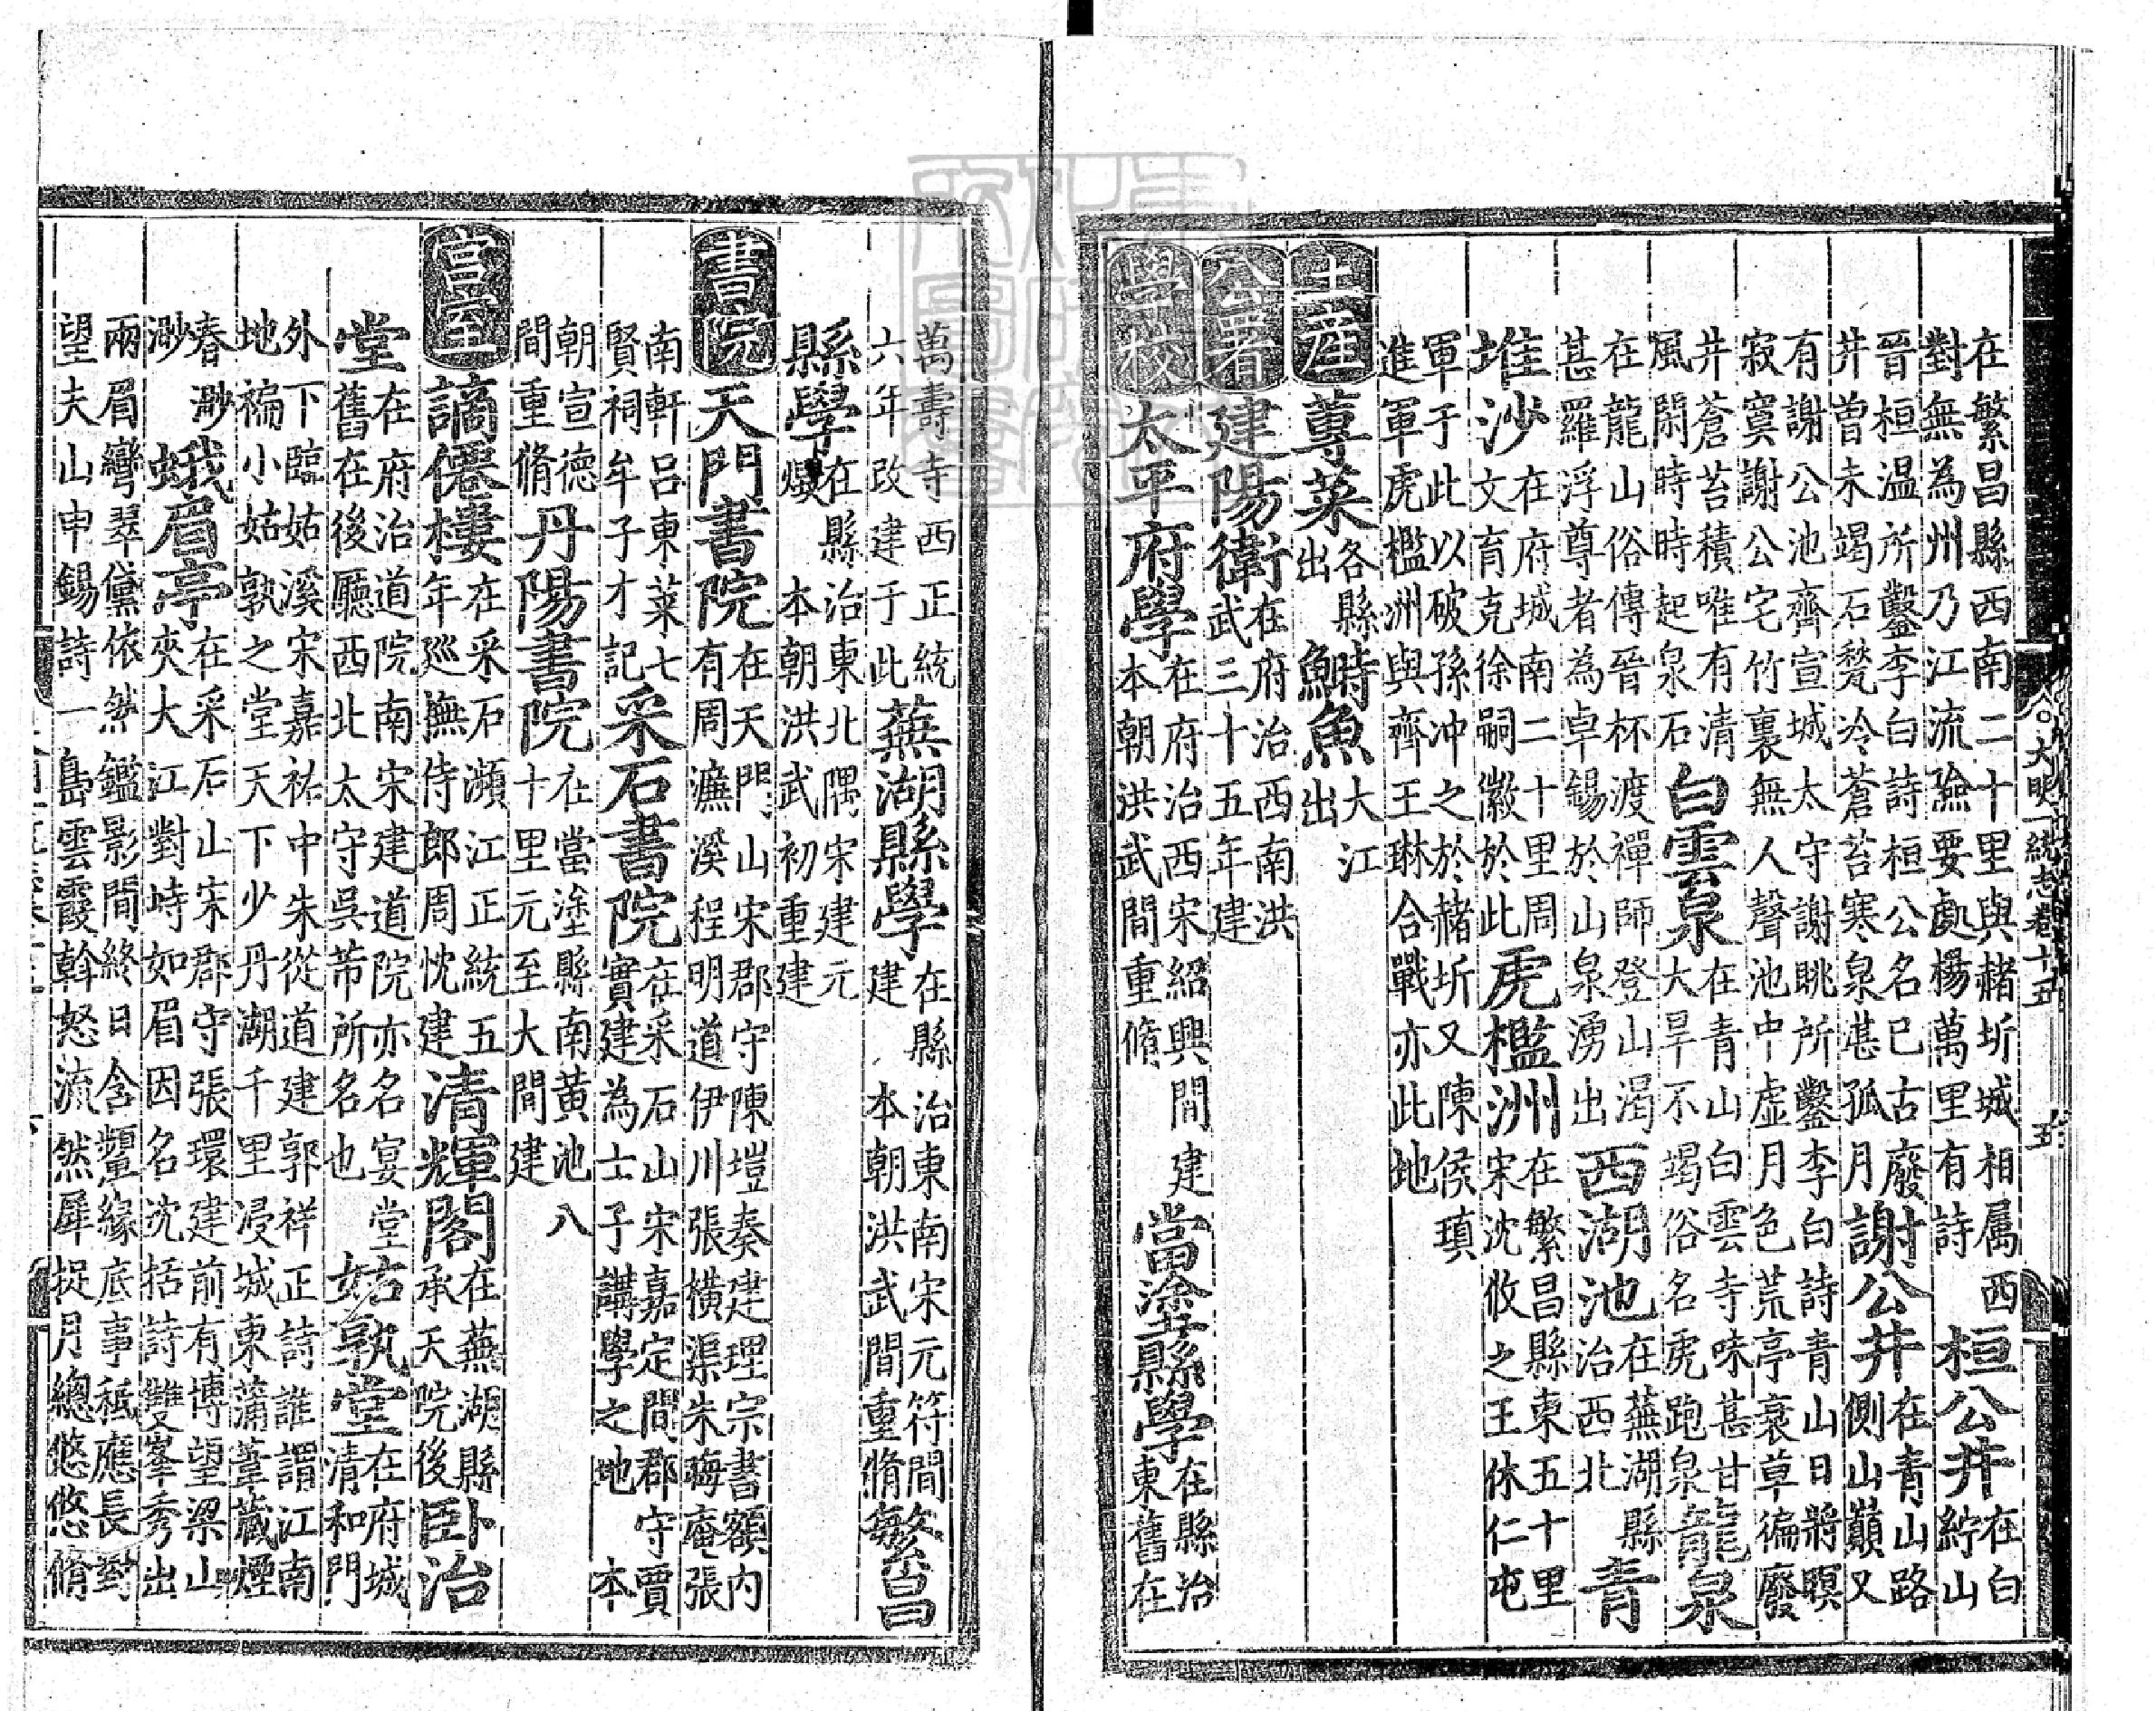 大明一統志卷十五 五
在繁昌縣西南二十里與赭圻城相属西對無為州乃江流險要處楊萬里有詩桓公井在白紵山
晉桓温所鑿李白詩桓公名已古廢井曾未竭石甃冷蒼苔寒泉湛孤月謝公井在青山路側山巔又
有謝公池齊宣城太守謝眺所鑿李白詩青山日將暝寂寞謝公宅竹裏無人聲池中虛月色荒亭衰草徧廢
井蒼苔積唯有清風閑時時起泉石白雲泉在青山白雲寺味甚甘大旱不竭俗名虎跑泉龍泉
在龍山俗傳晉杯渡禪師登山渴甚羅浮尊者為卓錫於山泉湧出西湖池在蕪湖縣治西北青
堆沙在府城南二十里周文育克徐嗣徽於此虎檻洲在繁昌縣東五十里宋沈攸之王休仁屯
軍于此以破孫冲之於赭圻又陳侯瑱進軍虎檻洲與齊王琳合戰亦此地
土産 蓴菜各縣出鰣魚大江出
公署 建陽衛在府治西南洪武三十五年建
學校 太平府學在府治西宋紹興間建本朝洪武間重脩當塗縣學在縣治東舊在
萬壽寺西正統六年改建于此蕪湖縣學在縣治東南宋元符間建 本朝洪武間重脩繁昌
縣學在縣治東北隅宋建元燬 本朝洪武初重建
書院 天門書院在天門山宋郡守陳塏奏建理宗書額内有周濂溪程明道伊川張横渠朱晦庵張
南軒吕東萊七賢祠牟子才記采石書院在采石山宋嘉定間郡守賈實建為士子講學之地 本
朝宣德間重脩丹陽書院在當塗縣南黄池八十里元至大間建
宫室 謫僊樓在采石瀕江正統五年巡撫侍郎周忱建清輝閣在蕪湖縣承天院後卧治
堂在府治道院南宋建道院亦名宴堂舊在後廳西北太守吳芾所名也姑孰堂在府城清和門
外下臨姑溪宋嘉祐中朱從道建郭祥正詩誰謂江南地褊小姑孰之堂天下少丹湖千里浸城東蒲葦藏煙
春渺渺蛾眉亭在采石山宋郡守張環建前有博望梁山夾大江對峙如眉因名沈括詩雙峯秀出
兩眉彎翠黛依然鑑影間終日含顰緣底事秪應長對望夫山申錫詩一島雲霞斡怒流然犀捉月總悠悠脩